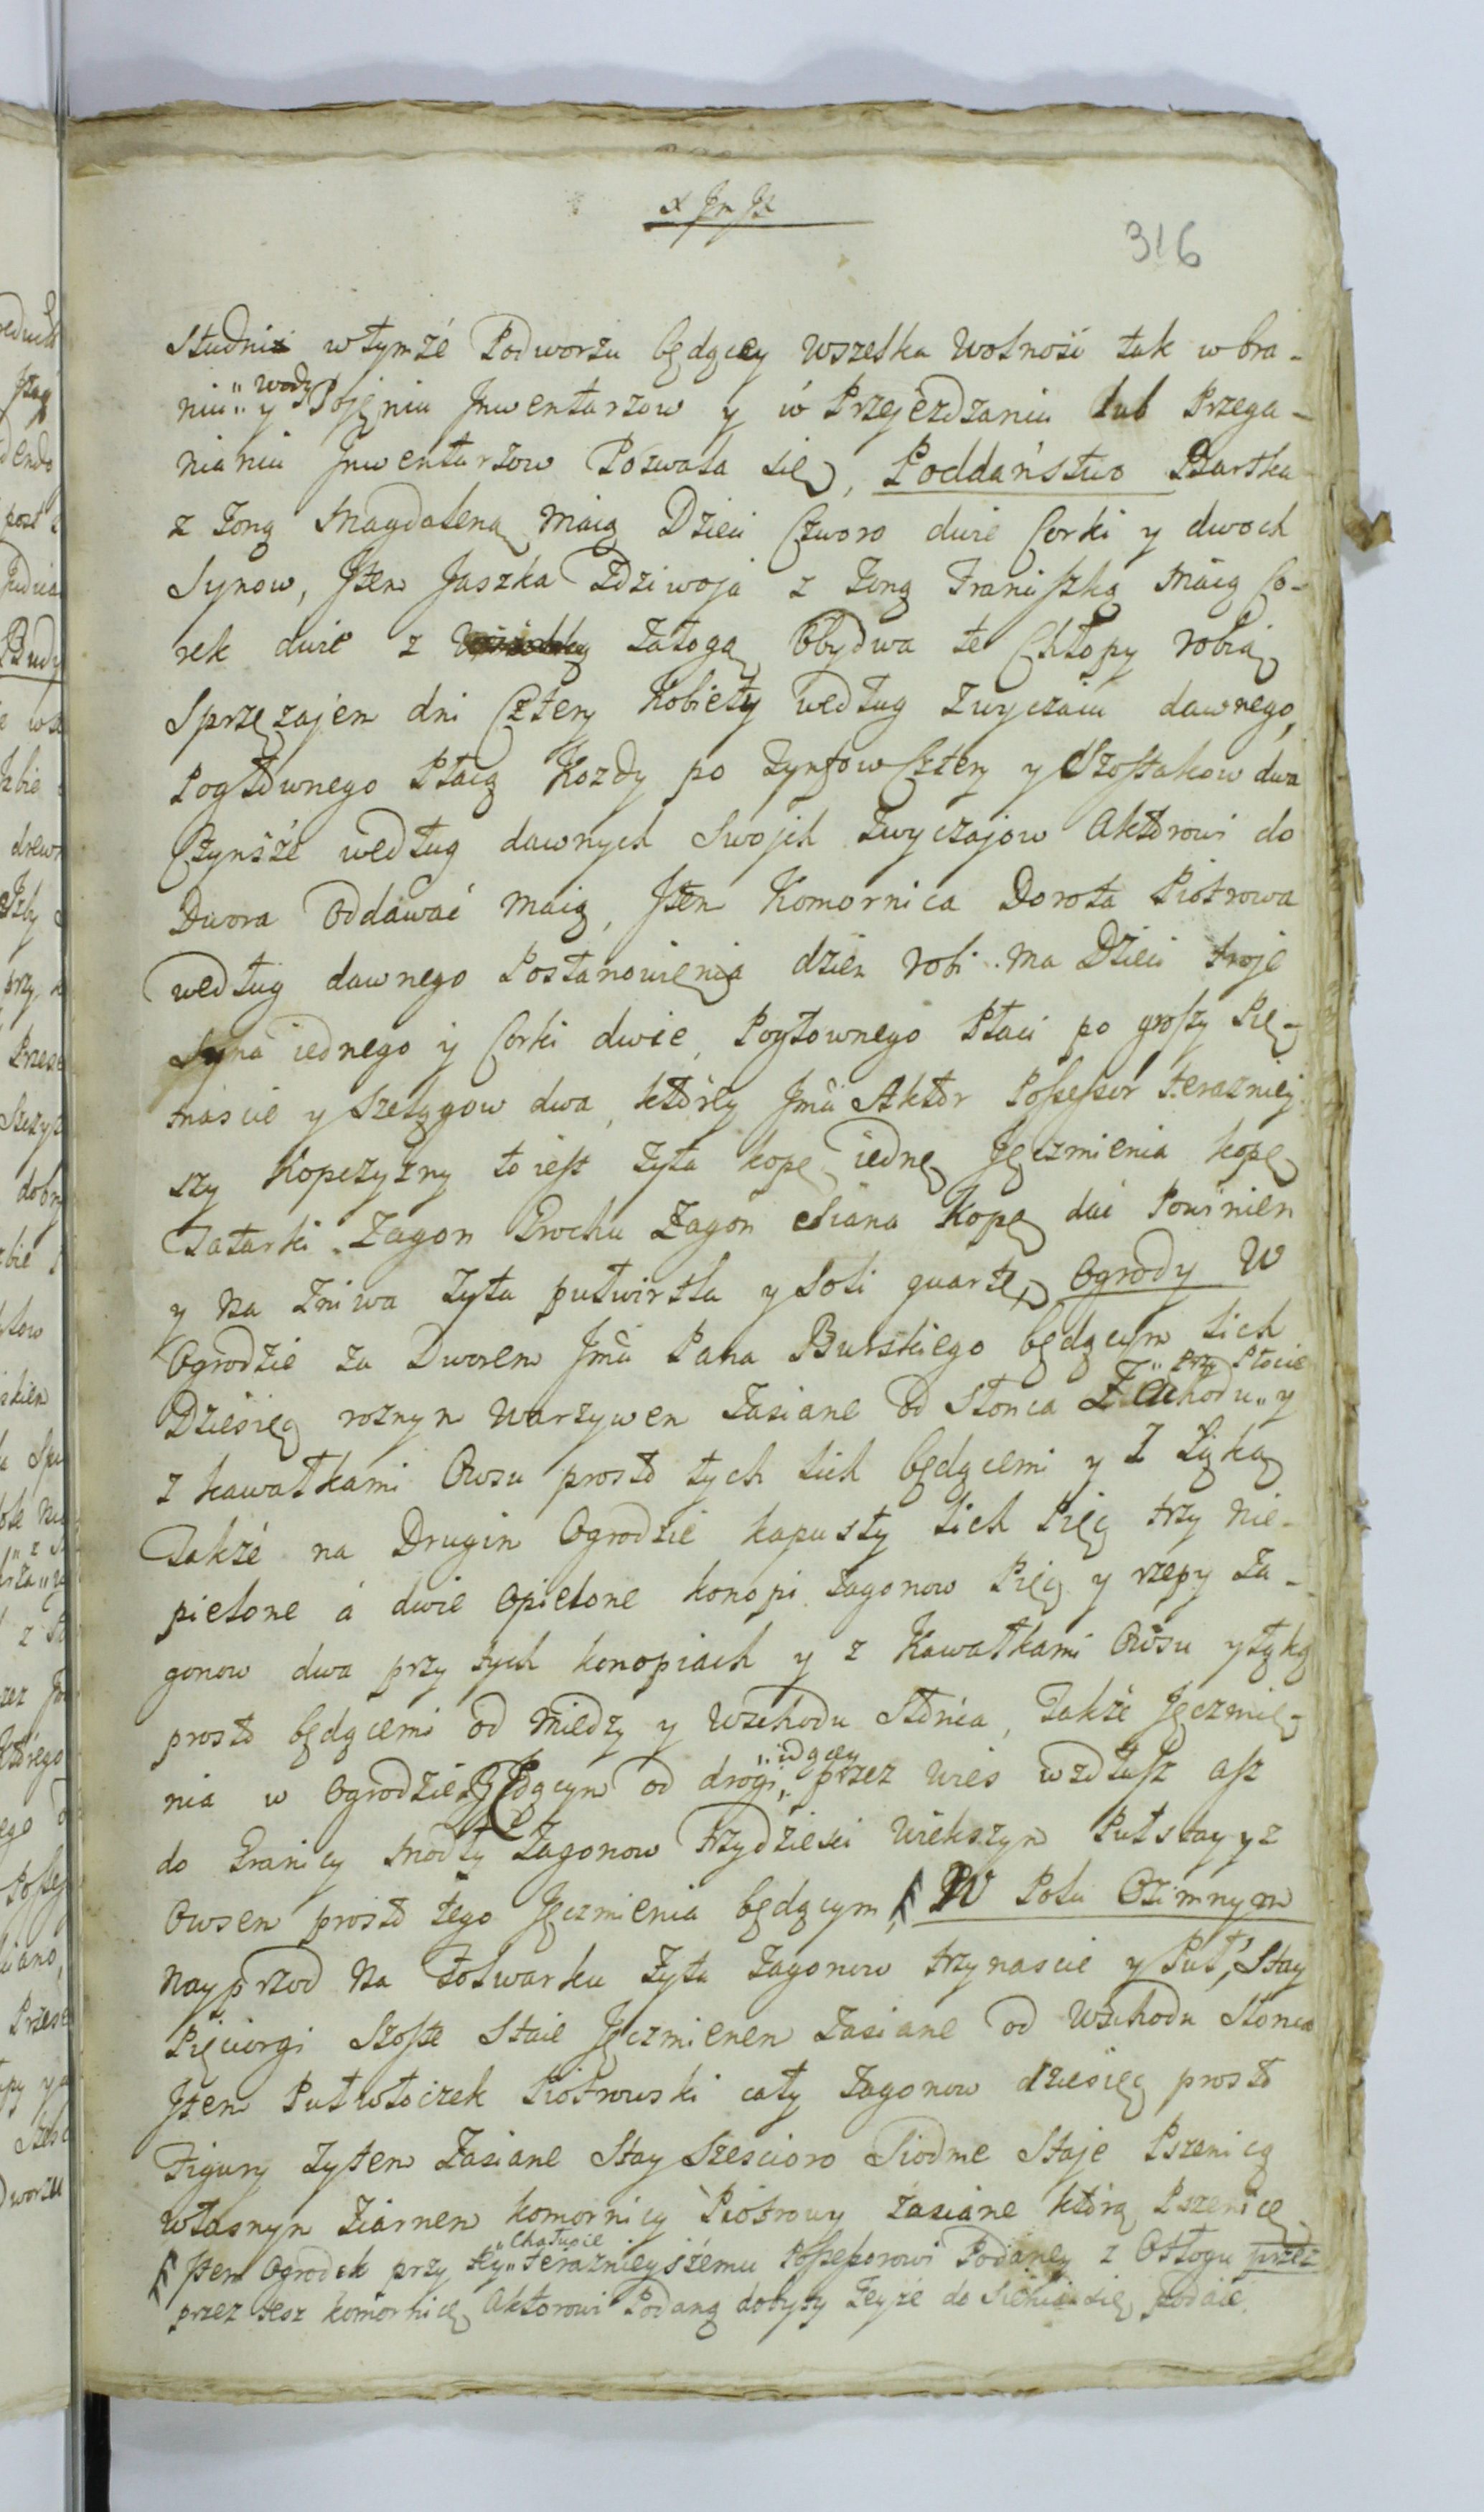 316
Studni w tymże Podworzu będącey wszelka wolność tak w bra-
niu „wody„ y Pojęniu Jnwentarzow y w Przejeżdzaniu lub Przega-
nianiu Jnwentarzow Pozwala się, Poddaństwo Bartka
z Zoną Magdaleną maią Dzieci Czworo dwie Corki y dwoch
Synow, Jtem Jaszka Zdziwoja z Zoną Franiszką maią Co-
rek dwie z Załogą Obydwa te Chłopy robią
Sprzęzajem dni Cztery Kobiety według zwyczaiu dawnego,
Pogłownego Płacą Kozdy po Tynfow Cztery y Szostakow dwa
Czynsze według dawnych Swojch Zwyczajow Aktorowi do
Dwora Oddawać maią, Jtem Komornica Dorota Piotrowa
według dawnego Postanowienia dzien robi ma Dzieci troje
Syna iednego y Corki dwie, Pogłownego Płaci po groszy Pię-
tnascie y Szelągow dwa, ktorey Jmć Aktor Possessor terazniey
szy Kopczyzny to iest Zyta kopę iednę Jęczmienia kopę
Tatarki Zagon Grochu Zagon Siana Kopę dać Powinien
y na Zniwa Zyta pułwirtka y Soli quartę, Ogrody W
Ogrodzie za Dworem Jmci Pana Burskiego będącym lich
Dziesięć roznym Warzywem Zasiane od Słonca Zachodu „przy Płocie„ y
z kawałkami Owsu prosto tych lich będącemi y z Łąką
Także na Drugim Ogrodzie kapusty lich Pięć trzy nie-
pielone a dwie opielone konopi Zagonow Pięć y rzepy Za-
gonow dwa przy tych konopiach y z Kawałkami Owsu y łąką
prosto będącemi od Miedzy y Wschodu Słońca, Także Jęczmie-
nia w Ogrodzie Będącym od drogi „idącey„ przez Wies wzdłusz asz
do Granicy Modły Zagonow Trzydziesci Większym Pułstay y z
Owsem prosto tego Jęczmienia będącym, W Polu Ozimnym
Nayprzod Na Folwarku Zyta Zagonow trzynascie y Puł, Stay
Pięciorgi Szoste Staie Jęczmienem Zasiane od Wschodu Słonca
Jtem Pułwłoczek Piotrowski cały Zagonow dziesięć prosto
Figury Zytem Zasiane Stay Szescioro Siodme Staje Pszenicą
Własnym Ziarnem komornicy Piotrowy Zasiane którą Pszenicę
Jtem Ogrodek przy tey „Chałupie„ Terazneyszemu Possessorowi Podaney z Otłogu przez
przez tesz komornicę Aktorowi Podaną dobyty Teyże do Sienia się podaie.